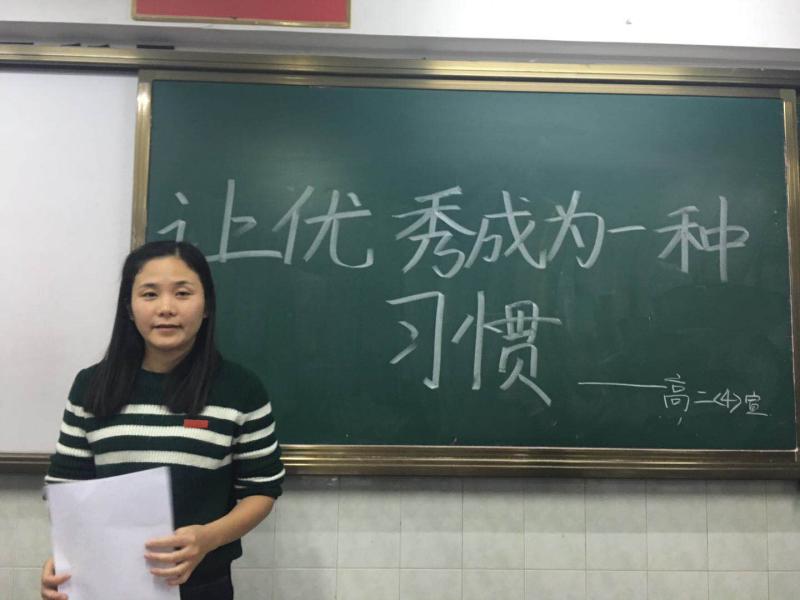 让优秀成为一种
习惯
——高二<4>宣